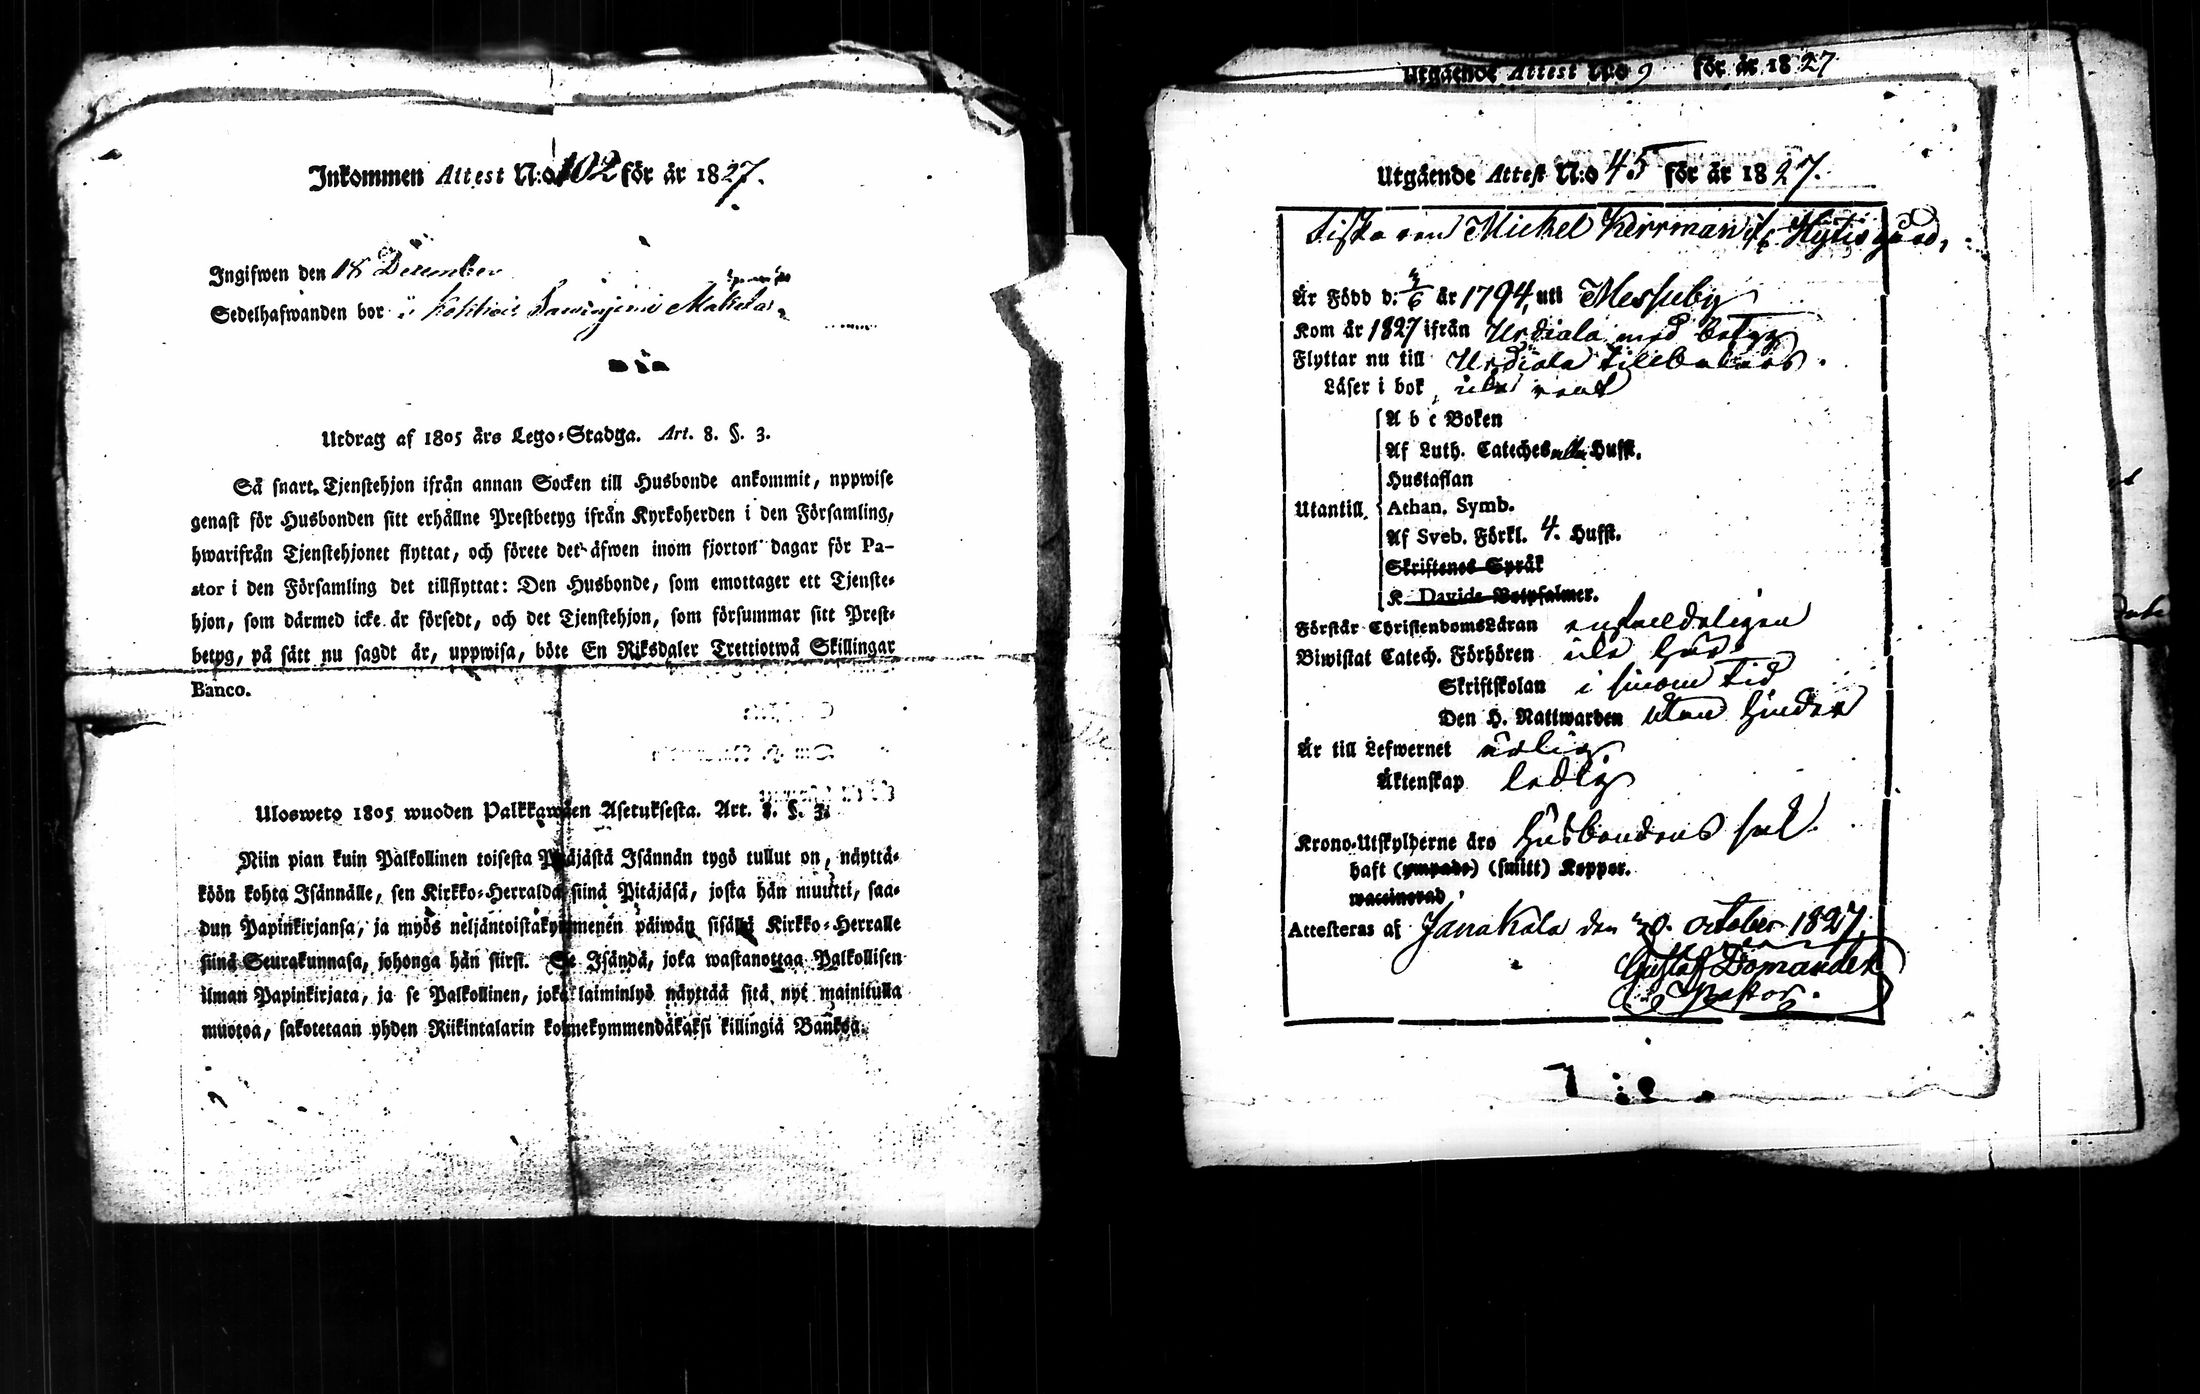 Inkommen Attest N:o 102 för år 1827.
Ingifwen den 18 December
Sedelhafwanden bor i
Utdrag af 1805 års Lego-Stadga. Art. 8. §. 3.
Så snart Tjenstehjon ifrån annan Socken till Husbonde ankommit, uppwise
genast för Husbonden sitt erhållne Prestbetyg ifrån Kyrkoherden i den Församling,
hwarifrån Tjenstehjonet flyttat, och förete det äfwen inom fjorton dagar för Pa-
stor i den Församling det tillflyttat: Den Husbonde, som emottager ett Tjenste-
hjon, som därmed icke är försedt, och det Tjenstehjon, som försummar sitt Prest-
betyg, på sätt nu sagdt är, uppwisa, böte En Riksdaler Trettiotwå Skillingar
Banco.
Ulosweto 1805 wuoden Palkkawäen Asetuksesta. Art. 8. §. 3.
Niin pian kuin Palkollinen toisesta Pitäjästä Isännän tygö tullut on, näyttä-
köön kohta Isännälle, sen Kirkko-Herralda siinä Pitäjäsä, josta hän muutti, saa-
dun Papinkirjansa, ja myös neljäntoistakymmenen päiwän sisällä Kirkko-Herralle
siinä Seurakunnasa, johonga hän siirsi. Se Isändä, joka wastanottaa Palkollisen
ilman Papinkirjata, ja se Palkollinen, joka laiminlyö näyttää sitä nyt mainitulla
muotoa, sakotetaan yhden Riikintalarin kolmekymmendäkaksi killingiä Bankoa.
Utgående Attest N:o 9 för år 1827
Utgående Attest N:o 45 för år 1827.
Michel Kerrman
Är Född d. 2/6 år 1794, uti Messuby
Kom år 1827 ifrån Urdiala med betyg
Flyttar nu till Urdiala tillbakars.
Läser i bok rent
A b c Boken
Af Luth. Cateches alla Hufst.
Hustaflan
Utantill Athan. Symb.
Af Sveb. Förkl. 4. Hufst.
Skriftenes Språk
K. Davids Botpsalmer.
Förstår Christendomsläran enfaldeligen
Biwistat Catech. Förhören
Skriftskolan i sinom tid
Den H. Nattwarden utan hinder
Är till Lefwernet ärlig
Äktenskap ledig
Krono-Utskylderne äro Husbondens sak.
haft (ympade) (smitt) Koppor.
waccinerad
Attesteras af Janakala den 30. october 1827.
Gustaf Domander
Pastor.